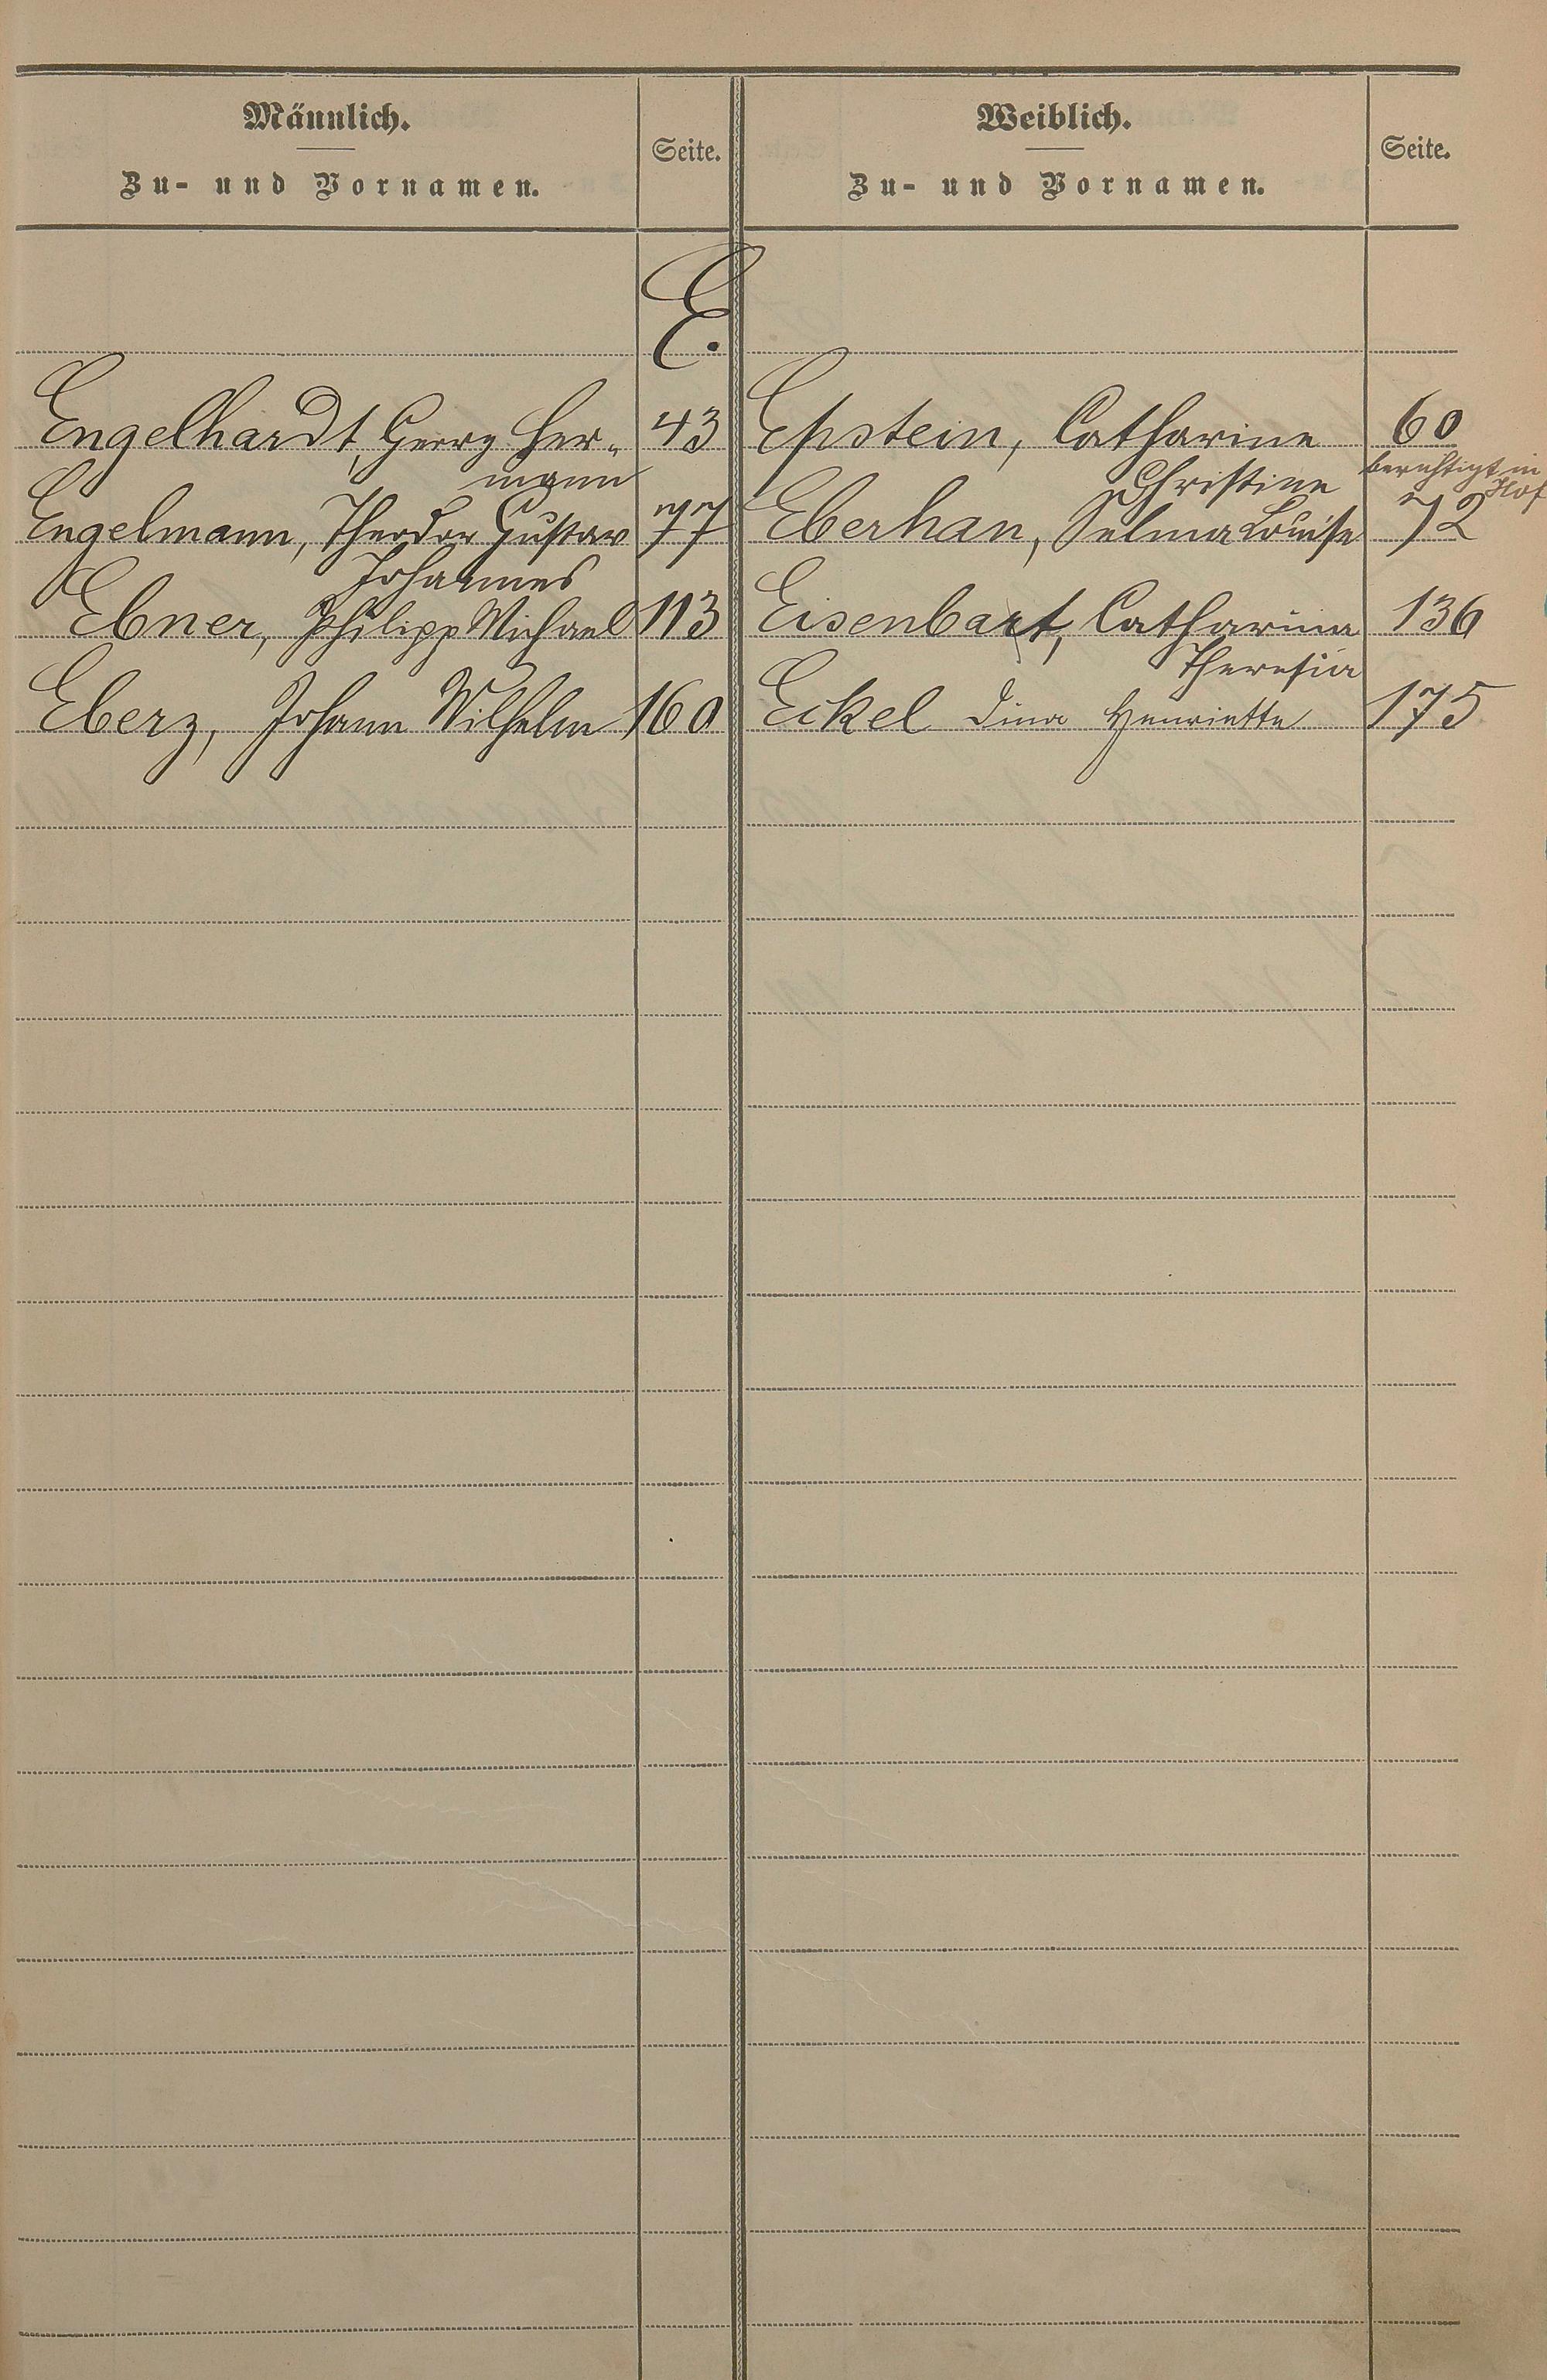 Männlich.
Zu- und Vornamen.
Seite.
Weiblich.
Zu- und Vornamen.
Seite.
E.
Engelhardt, Georg Her-
mann
43
Engelmann, Theodor Gustav
Johannes
77
Ebner, Philipp Michael 113
Eberz, Johann Wilhelm 160
Epstein, Catharine 60
Christine
berichtigt in
Hof
Eberhan, Selma Louise 72
Eisenbart, Catharina 136
Theresia
Eckel Dina Henriette 175